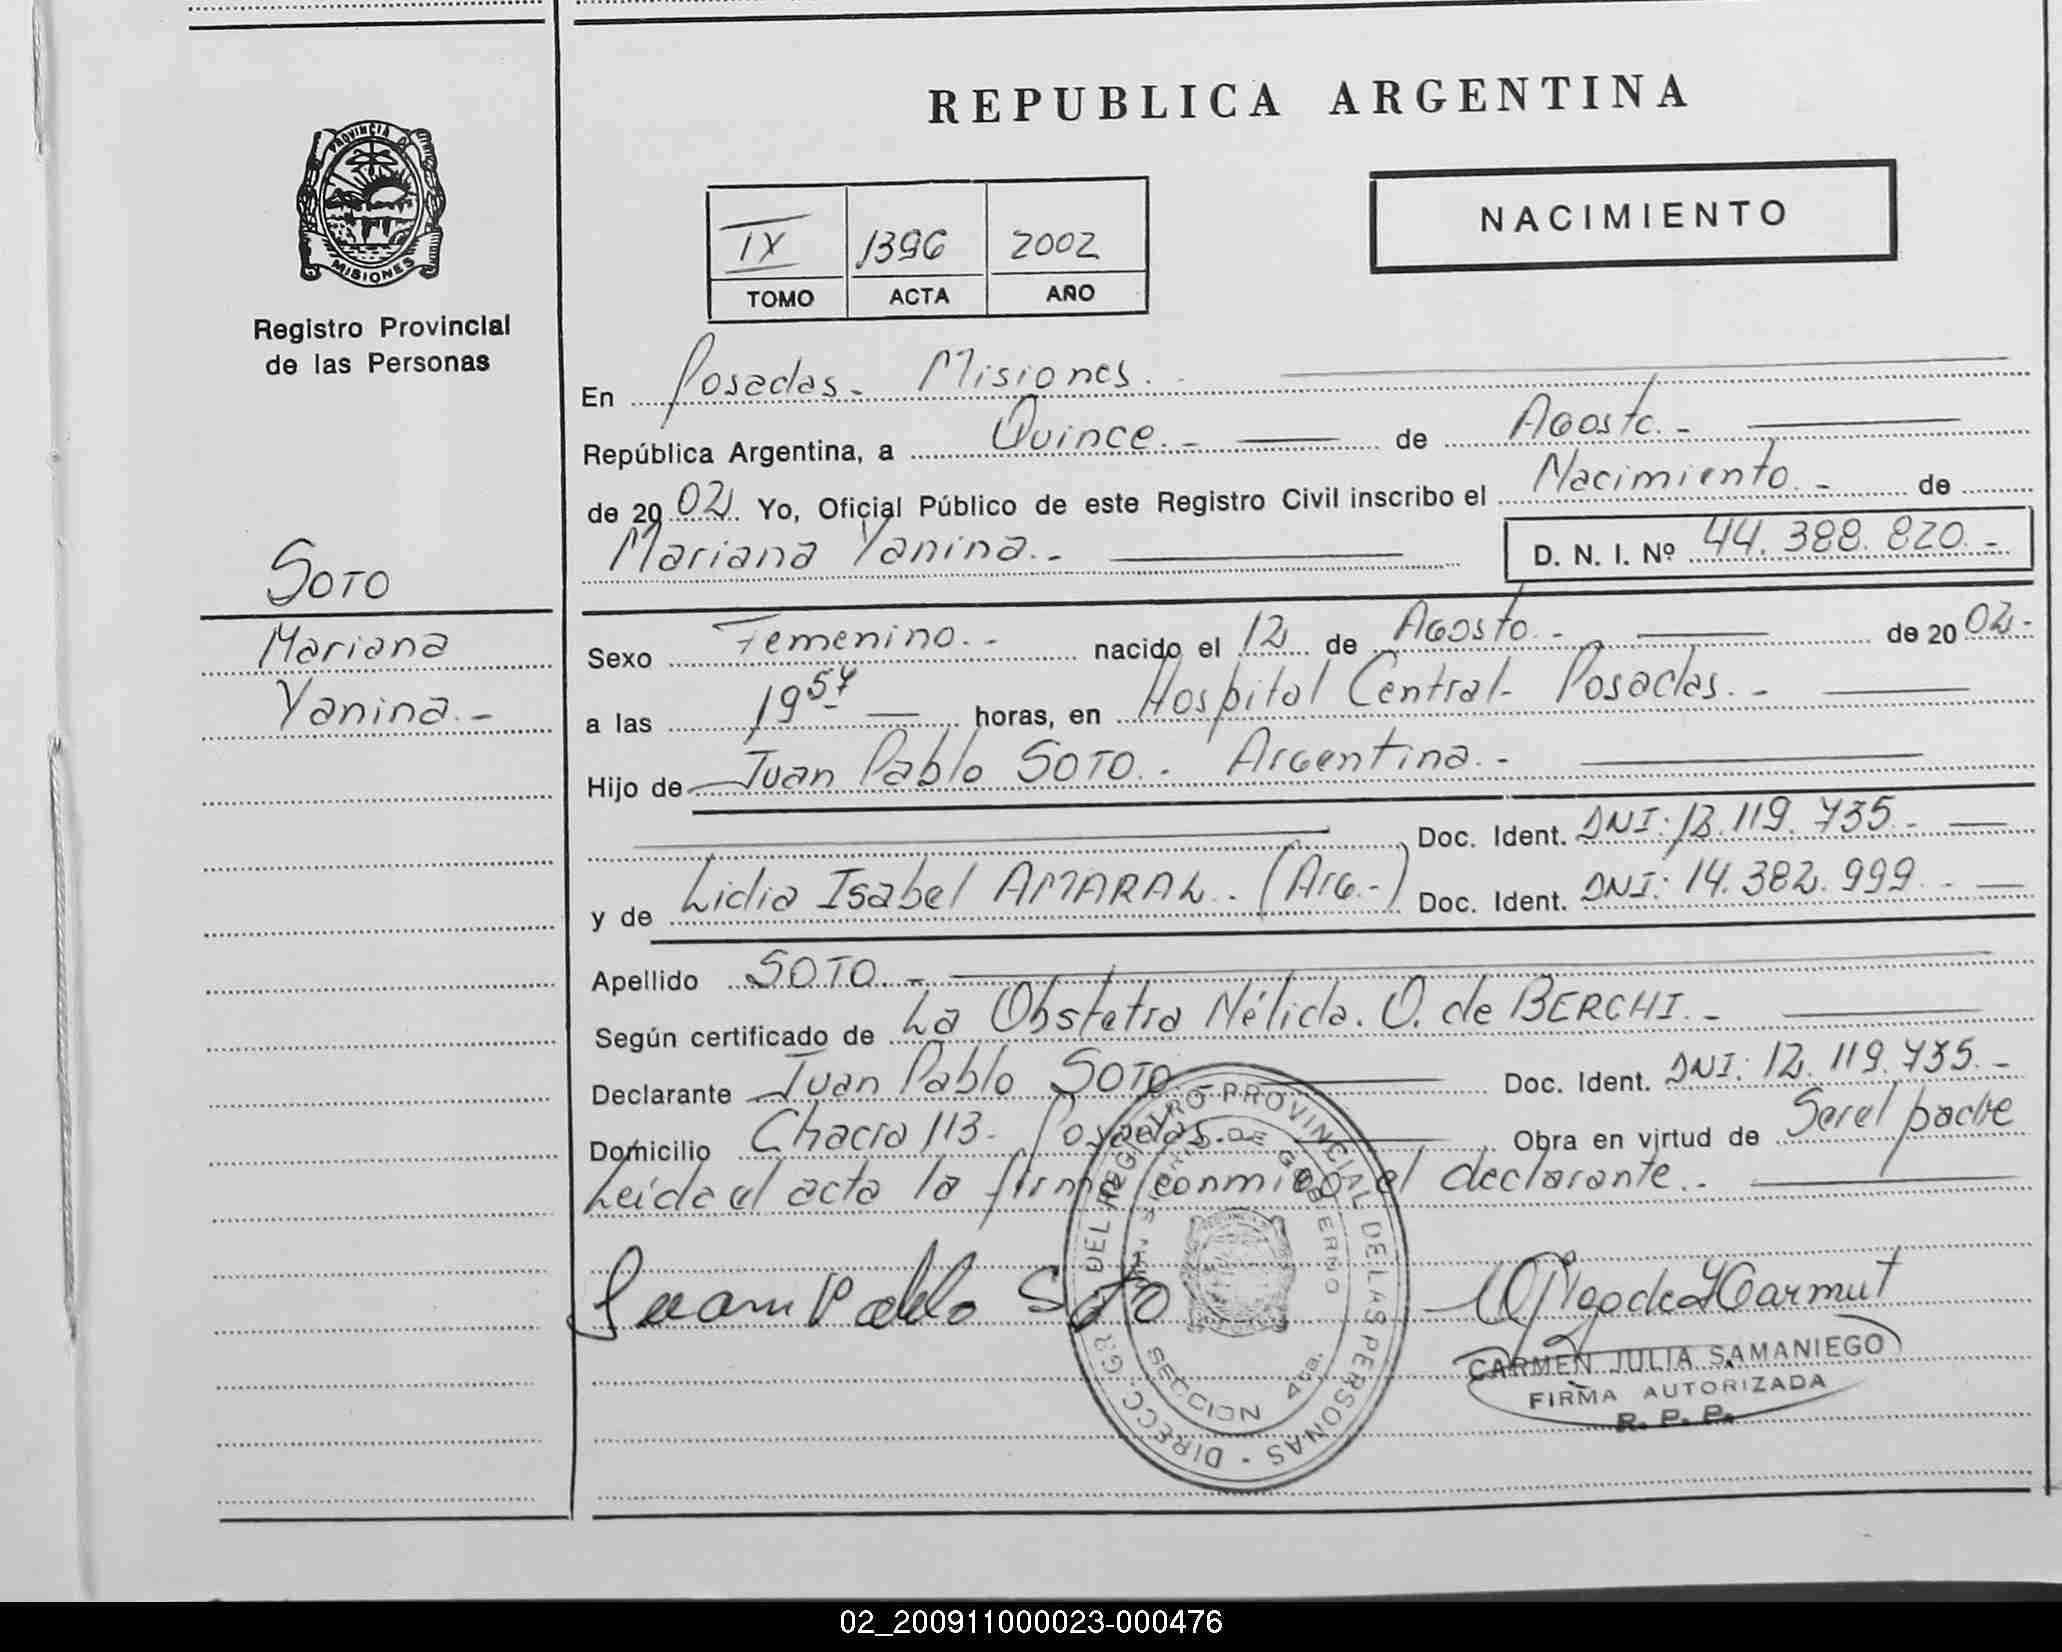 REPUBLICA ARGENTINA
PROVINCIA DE
MISIONES
Registro Provincial
de las Personas
NACIMIENTO
IX 1396 2002
TOMO ACTA AÑO
En Posadas - Misiones. -
República Argentina, a Quince. - de Agosto. -
de 2002 Yo, Oficial Público de este Registro Civil inscribo el Nacimiento. - de
Mariana Yanina. - D. N. I. Nº 44.388.820. -
SOTO
Mariana
Yanina. -
Sexo Femenino. - nacido el 12 de Agosto. - de 2002 -
a las 19 57 horas, en Hospital Central - Posadas. -
Hijo de Juan Pablo SOTO. - Argentina. -
Doc. Ident. DNI: 12.119.735. -
y de Lidia Isabel AMARAL. - (Arg. -) Doc. Ident. DNI: 14.382.999. -
Apellido SOTO. -
Según certificado de La Obstetra Nélida. O. de BERCHI. -
Declarante Juan Pablo SOTO. - Doc. Ident. DNI: 12.119.735. -
Domicilio Chacra 113 - Posadas. - Obra en virtud de Ser el padre
Leída el acta la firma conmigo el declarante. -
Juan Pablo Soto
DIRECC. GRAL. DEL REGISTRO PROVINCIAL DE LAS PERSONAS
DE GOBIERNO
SECCION 4ta.
CARMEN JULIA SAMANIEGO
FIRMA AUTORIZADA
R. P. P.
02_200911000023-000476